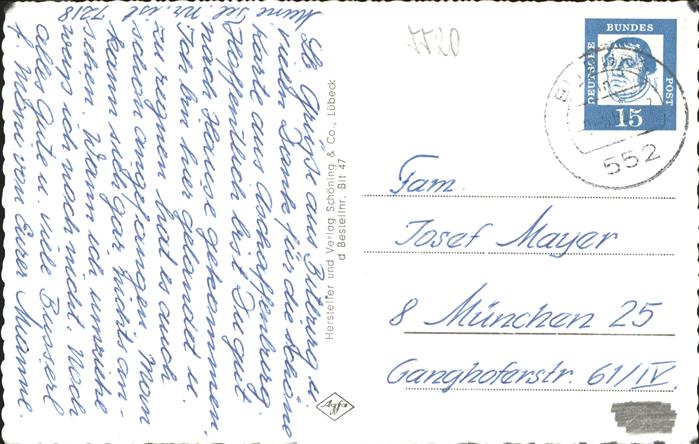 Lb. Grüße aus Bitburg u.
vielen Dank für die schöne
Karte aus Aschaffenburg
Hoffentlich bist Du gut
nach Hause gekommen.
hier gelandet u.
hat es auch
zu regnen
schon angefangen. Man
kann sich gar nichts an-
sehen. Wann ich umziehe
weiß ich noch nicht. Noch
alles Gute u. viele Busserl
f. Mimi von Eurer Mianne.
Meine Tel. Nr. ist
7318
Hersteller und Verlag Schöning & Co., Lübeck
d Bestellnr. Bit 47
5520
DEUTSCHE
BUNDES
POST
15
552
Fam.
Josef Mayer
8 München 25
Ganghoferstr. 61/IV.